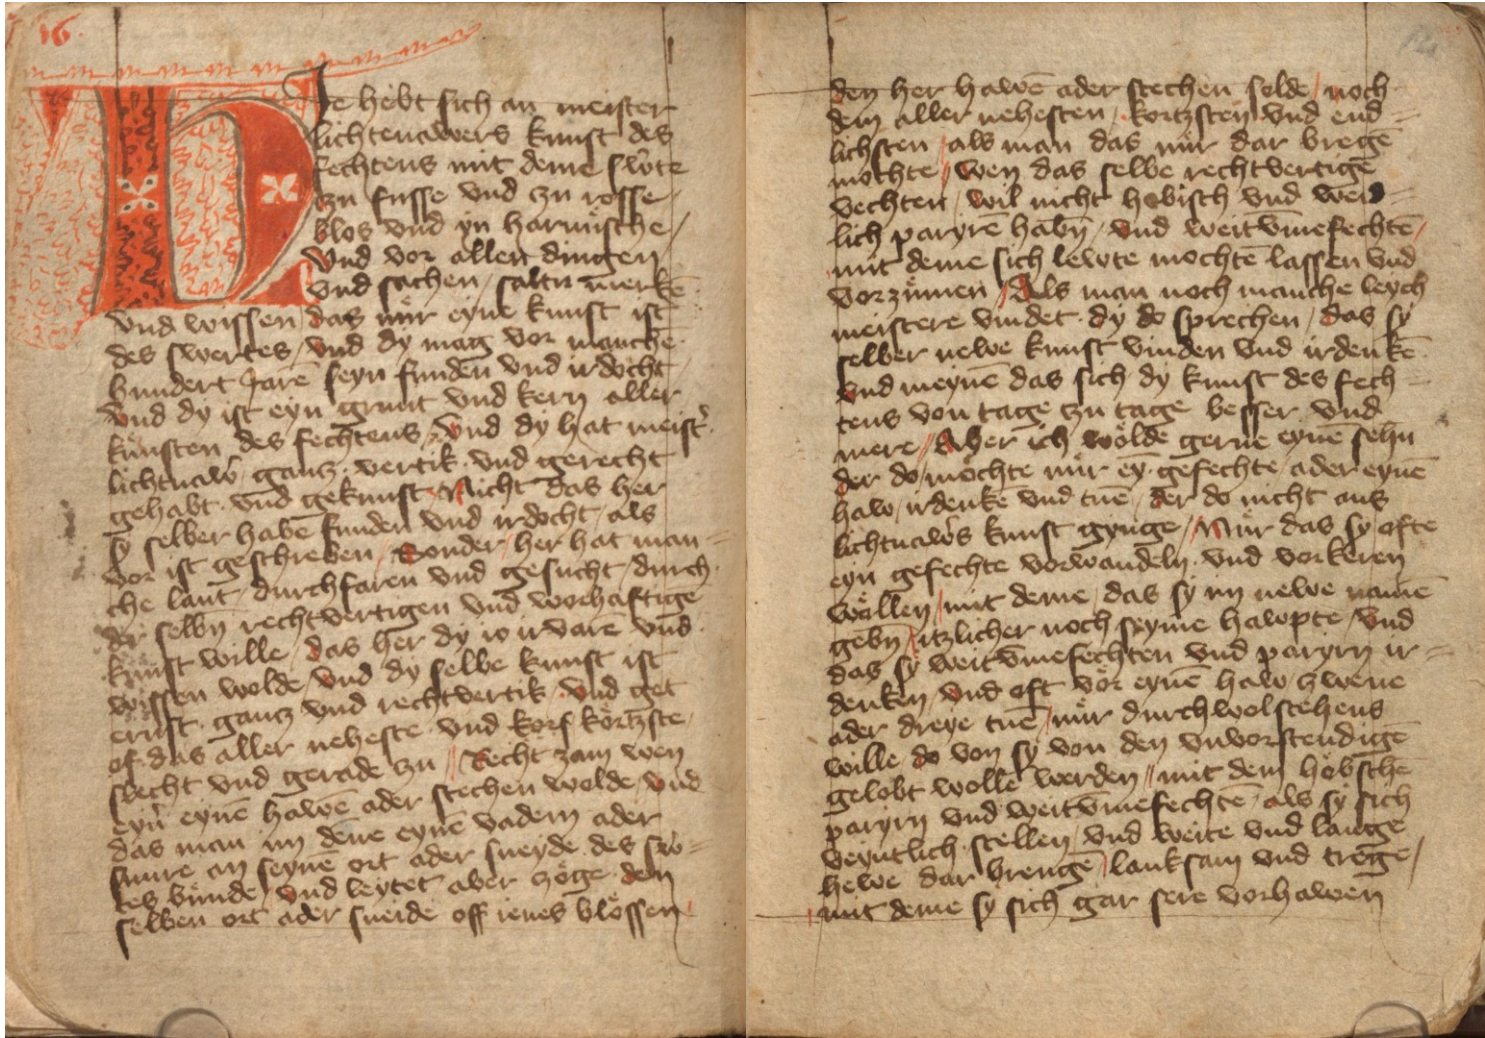 16
Hie hebt sich an meister
lichtenawers kunst des
fechtens mit deme sw̉te
zu fusse vnd zu rosse /
blos vnd yn harnüsche /
Vnd vor allen dingen
vnd sachen / saltu merkē
vnd wissen / das nür eyne kunst ist
des swertes / vnd dy mag vor manchē
hundert Jarē seyn funden vnd irdocht
vnd dy ist eyn grunt vnd kern aller
künsten des fechtens / vnd dy hat meist̉
lichtnaw̉ · gancz · vertik · vnd gerecht
gehabt · vnd gekunst / Nicht das her
sy selber habē funden vnd irdocht / als
vor ist geschreben / Sonder / her hat man=
che lant / durchfaren vnd gesucht / durch
der selbn̄ rechtvertigen vnd worhaftige
kunst wille / das her dy io irvarē vnd
wissen wolde / vnd dy selbe kunst ist
ernst · gancz vnd rechtvertik · vnd get
of das aller neheste · vnd korcz körtzste /
slecht vnd gerade zu // Recht zam wen
eyn̉ eynē hawē ader stechen wolde / vnd
das man im dēne eynē vadem ader
snure an seynē ort ader sneyde · des sw̉=
tes bünde / vnd leytet aber zöge · den
selben ort ader sneide off ienes blössen
den her hawē ader stechen solde / noch
dem aller nehesten / kortzsten vnd end=
lichsten / als man das nür dar bregē
mochte / wen das selbe rechtvertige
vechten / wil nicht höbisch vnd weid=
lich paryrē habn̄ · vnd weit v̄mefechtē /
mit deme sich lewte mochtē lassen vnd
vorzümen / Als man noch manche leych
meistere vindet · dy do sprechen / das sy
selber newe kunst vinden vnd irdenkē ·
vnd meynē das sich dy kunst des fech=
tens von tage zu tage besser vnd
mere // Aber ich wölde gerne eynē sehn
der do / möchte nür eȳ · gefechte ader eynē
haw / irdenkē vnd tuē / der do nicht aus
lichtnaw̉s kunst gynge / Nür das sy ofte
eyn gefechte vorwandeln · vnd vorkeren
wöllen / mit deme / das sy im newe namē
gebn̄ / itzlicher noch seyme hawpte / vnd
das sy weit v̄mefechten vnd paryrn ir=
denken · vnd oft vör eynē haw / zwene
ader dreye tuē / nür durch wolstehens
wille do von sy von den vnvorstendigē
gelobt wollē werden // mit dem höbschē
paryrn vnd weit v̄mefechtē · als sy sich
veyntlich · stellen / vnd weite vnd lange
hewe dar brengē / lanksam vnd trege /
mit deme sy sich gar sere vorhawen